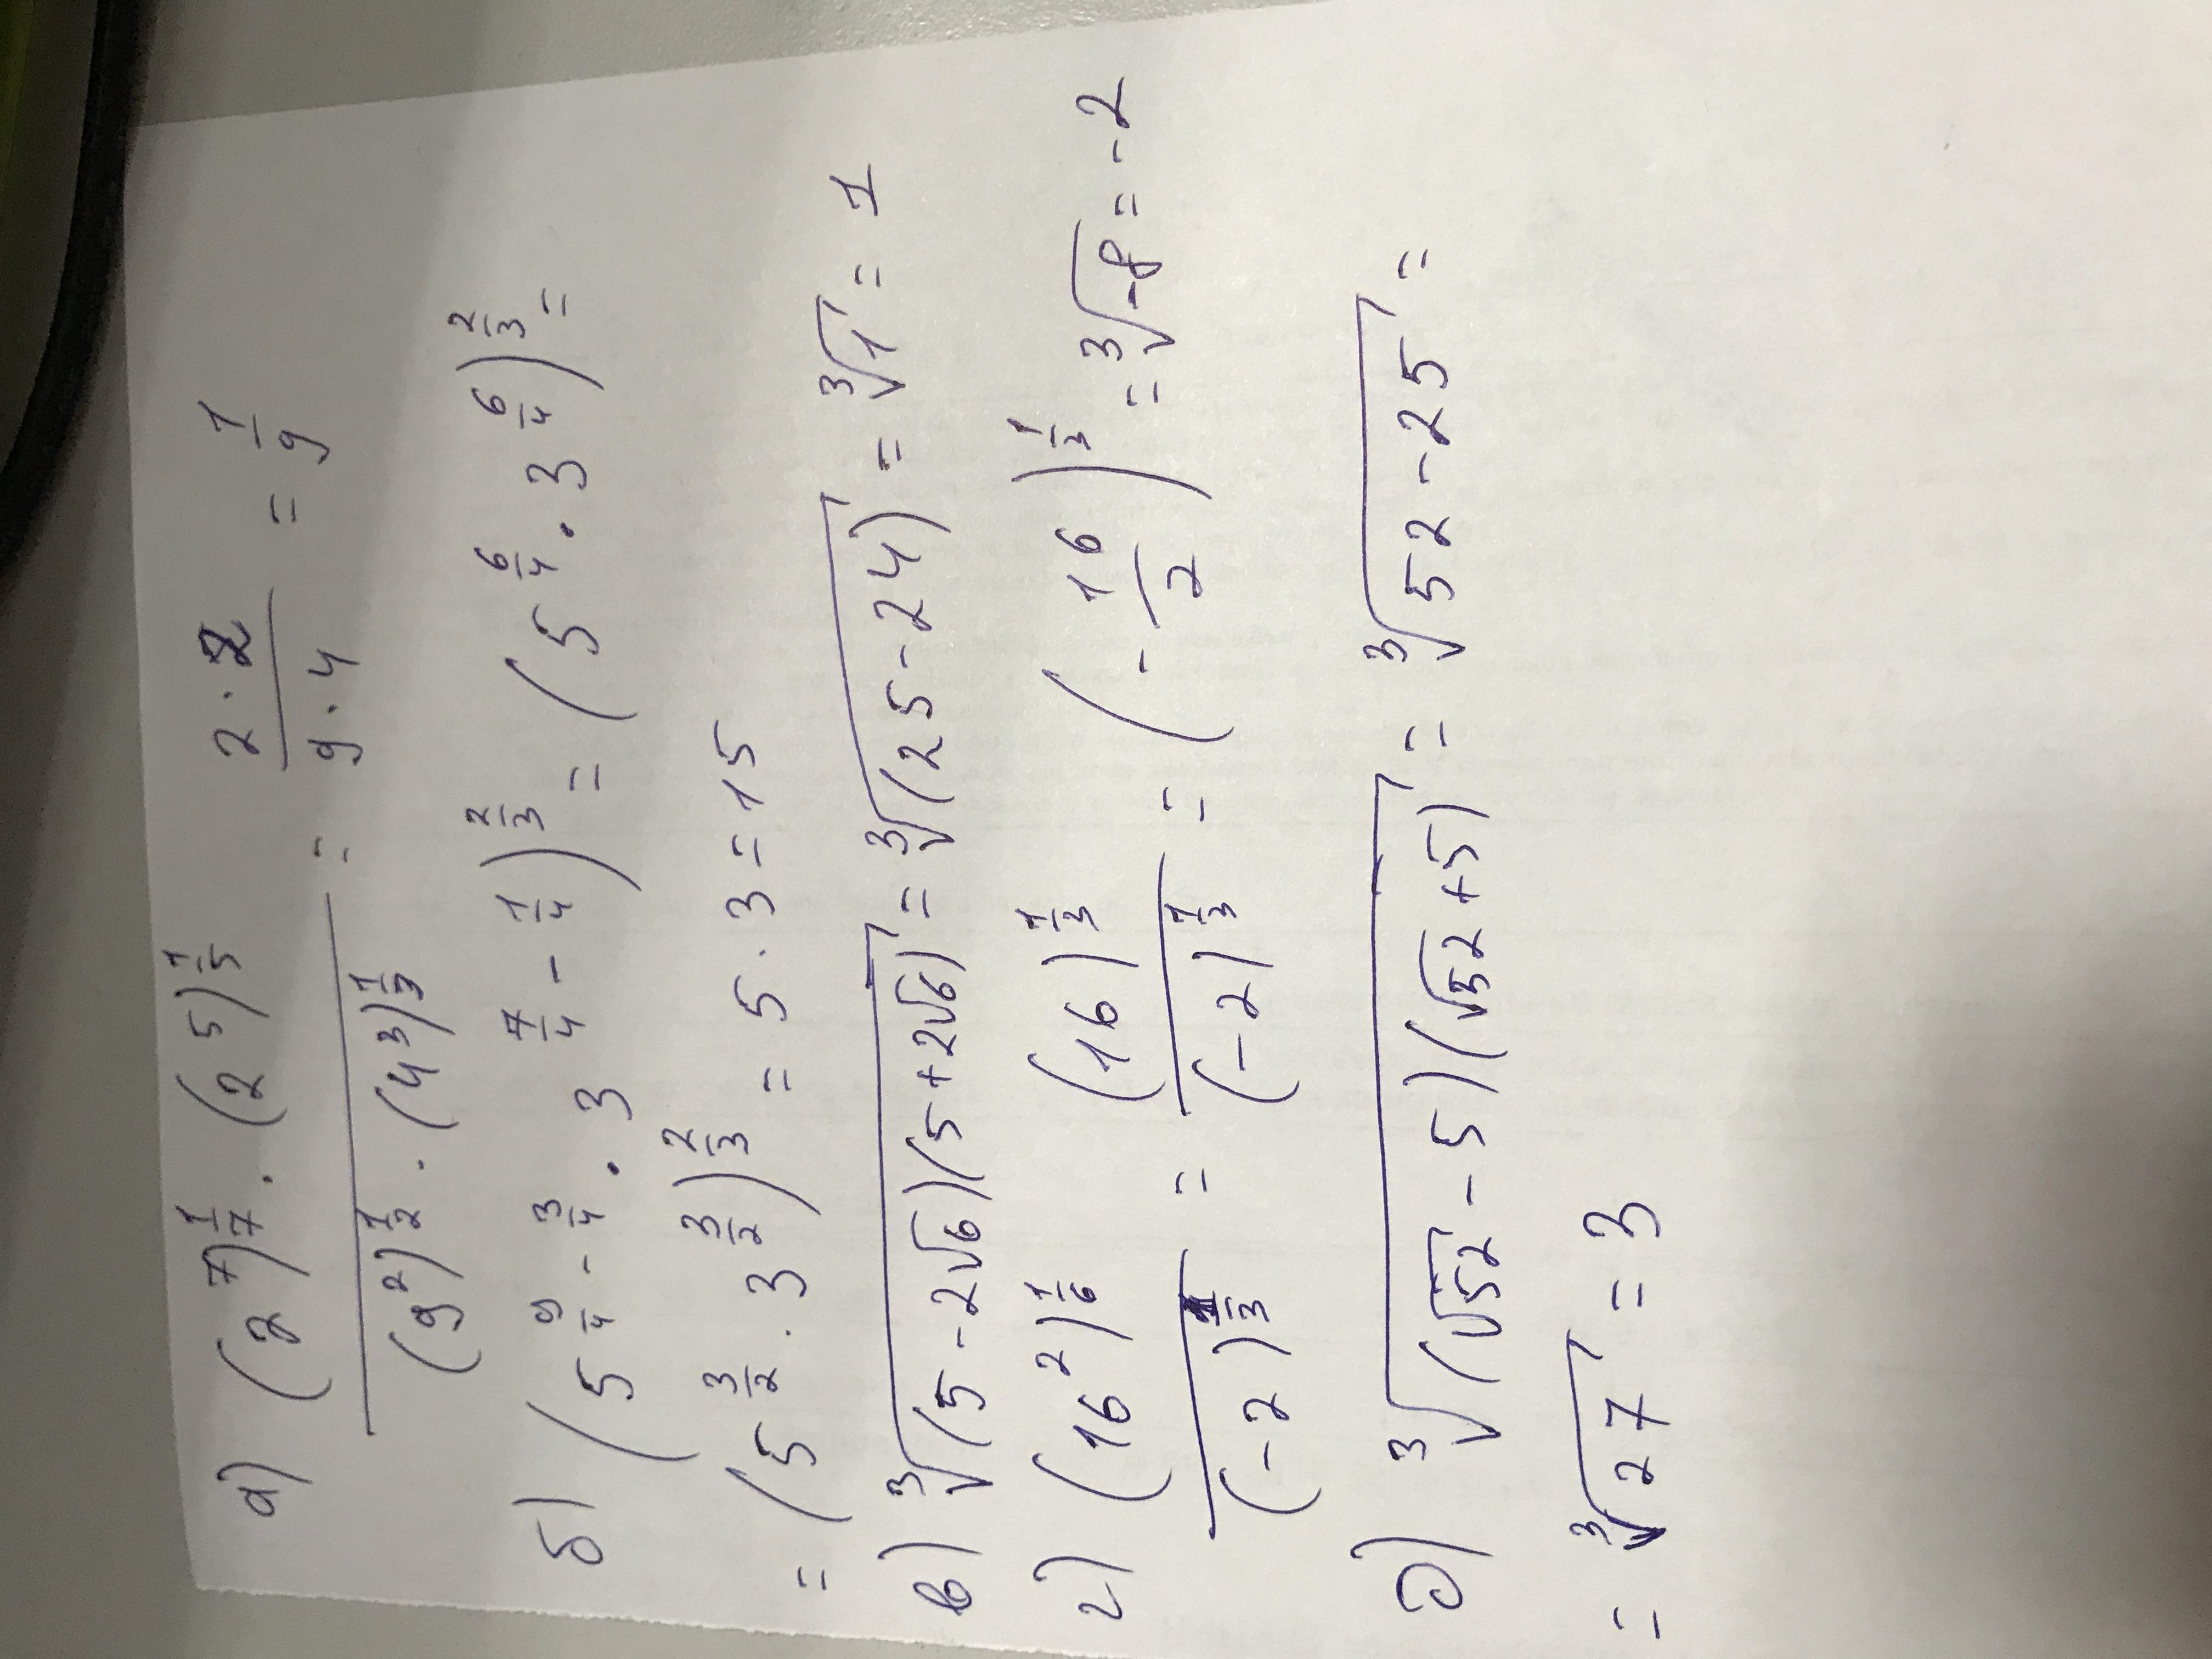 а) ((2^7)^{1/7} · (2^5)^{1/5}) / ((9^2)^{1/2} · (4^3)^{1/3}) = (2 · 2) / (9 · 4) = 1/9
б) (5^{9/4 - 3/4} · 3^{7/4 - 1/4})^{2/3} = (5^{6/4} · 3^{6/4})^{2/3} =
= (5^{3/2} · 3^{3/2})^{2/3} = 5 · 3 = 15
в) ∛((5 - 2√6)(5 + 2√6)) = ∛(25 - 24) = ∛1 = 1
г) (16^2)^{1/6} / (-2)^{1/3} = (16)^{1/3} / (-2)^{1/3} = (-16/2)^{1/3} = ∛-8 = -2
д) ∛((√52 - 5)(√52 + 5)) = ∛(52 - 25) =
= ∛27 = 3